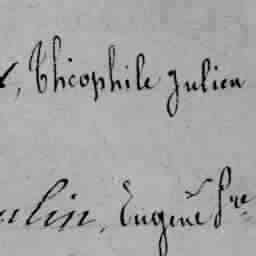 , Théophile Julien
ulin, Eugene Pre